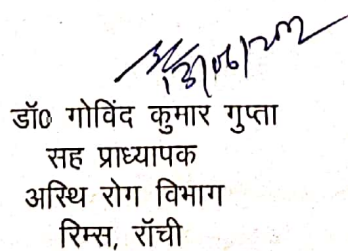 डॉ० गोविंद कुमार गुप्ता
सह प्राध्यापक
अस्थि रोग विभाग
रिम्स, राँची